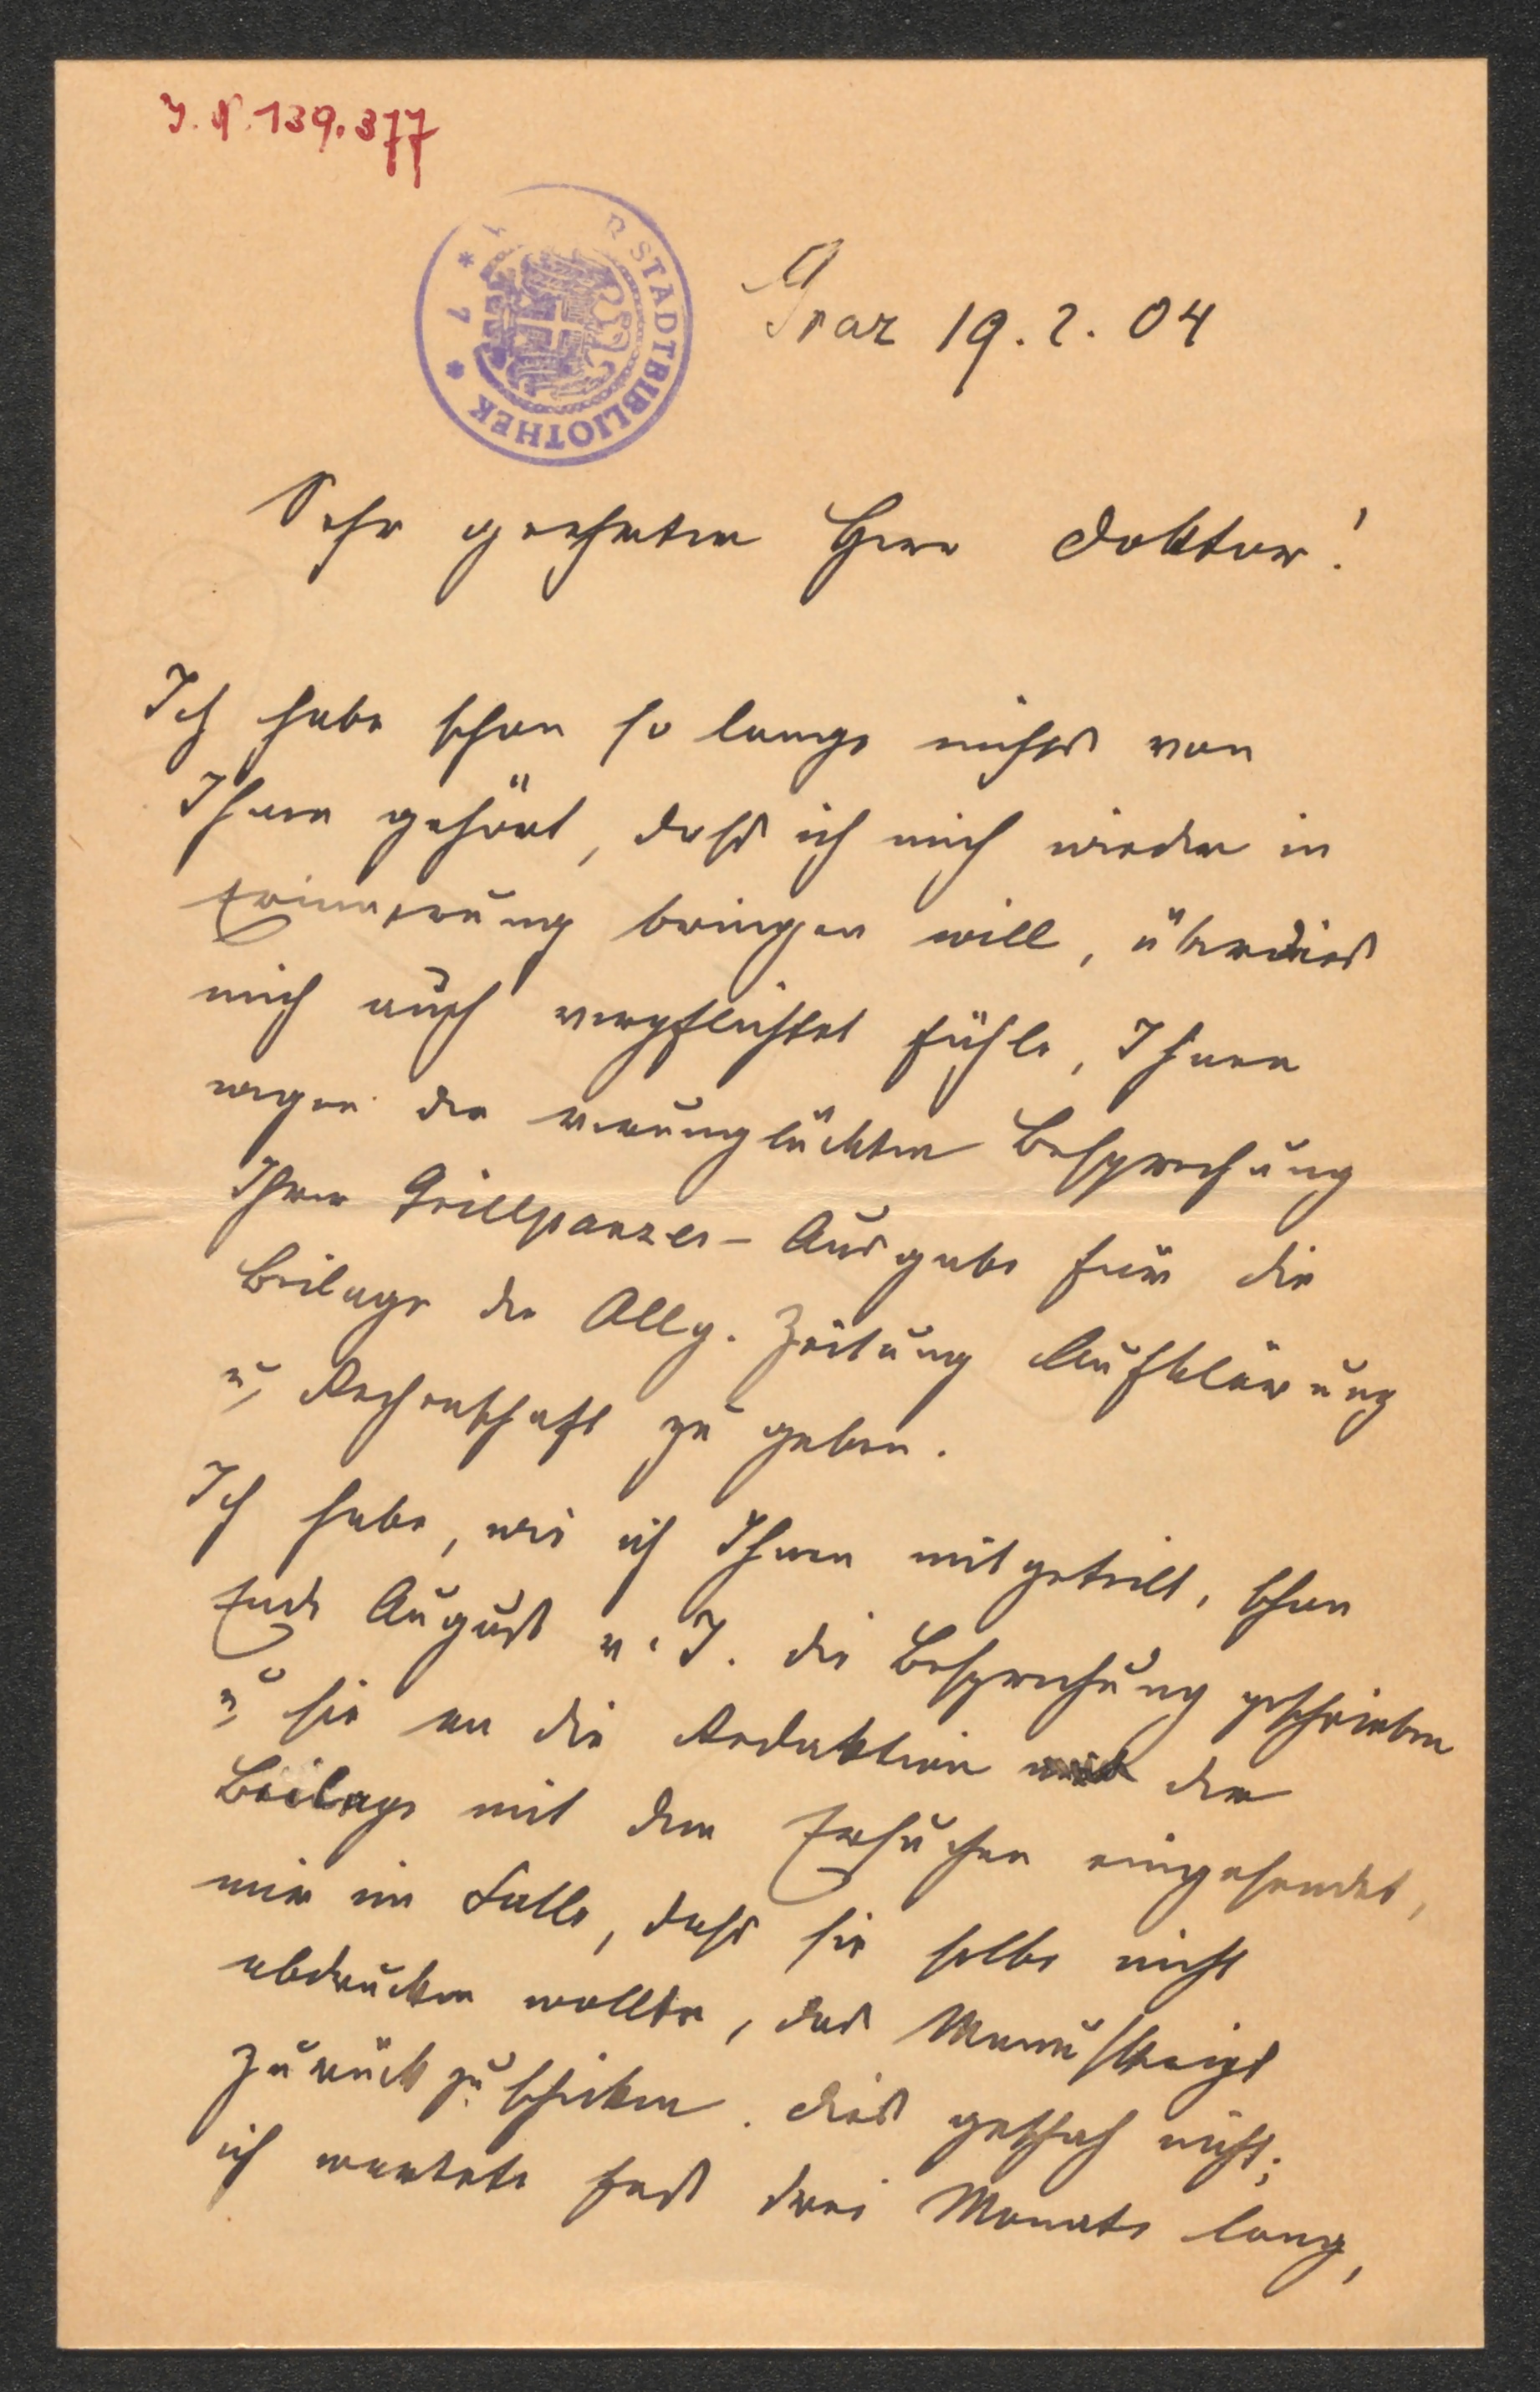 J. N. 139.377
STADTBIBLIOTHEK
* 7 *
Graz 19. 2. 04
Sehr geehrter Herr Doktor!
Ich habe schon so lange nichts von
Ihnen gehört, dass ich mich wieder in
Erinnerung bringen will, überdies
mich auch verpflichtet fühle, Ihnen
wegen der verunglückten Besprechung
Ihrer Grillparzer-Ausgabe für die
Beilage der Allg. Zeitung Aufklärung
u. Rechenschaft zu geben.
Ich habe, wie ich Ihnen mitgeteilt, schon
Ende August v. J. die Besprechung geschrieben
u. sie an die Redaktion der
Beilage mit dem Ersuchen eingesendet,
mir im Falle, dass sie selbe nicht
abdrucken wollte, das Manuskript
zurückzuschicken. Dies geschah nicht;
ich wartete fast drei Monate lang,